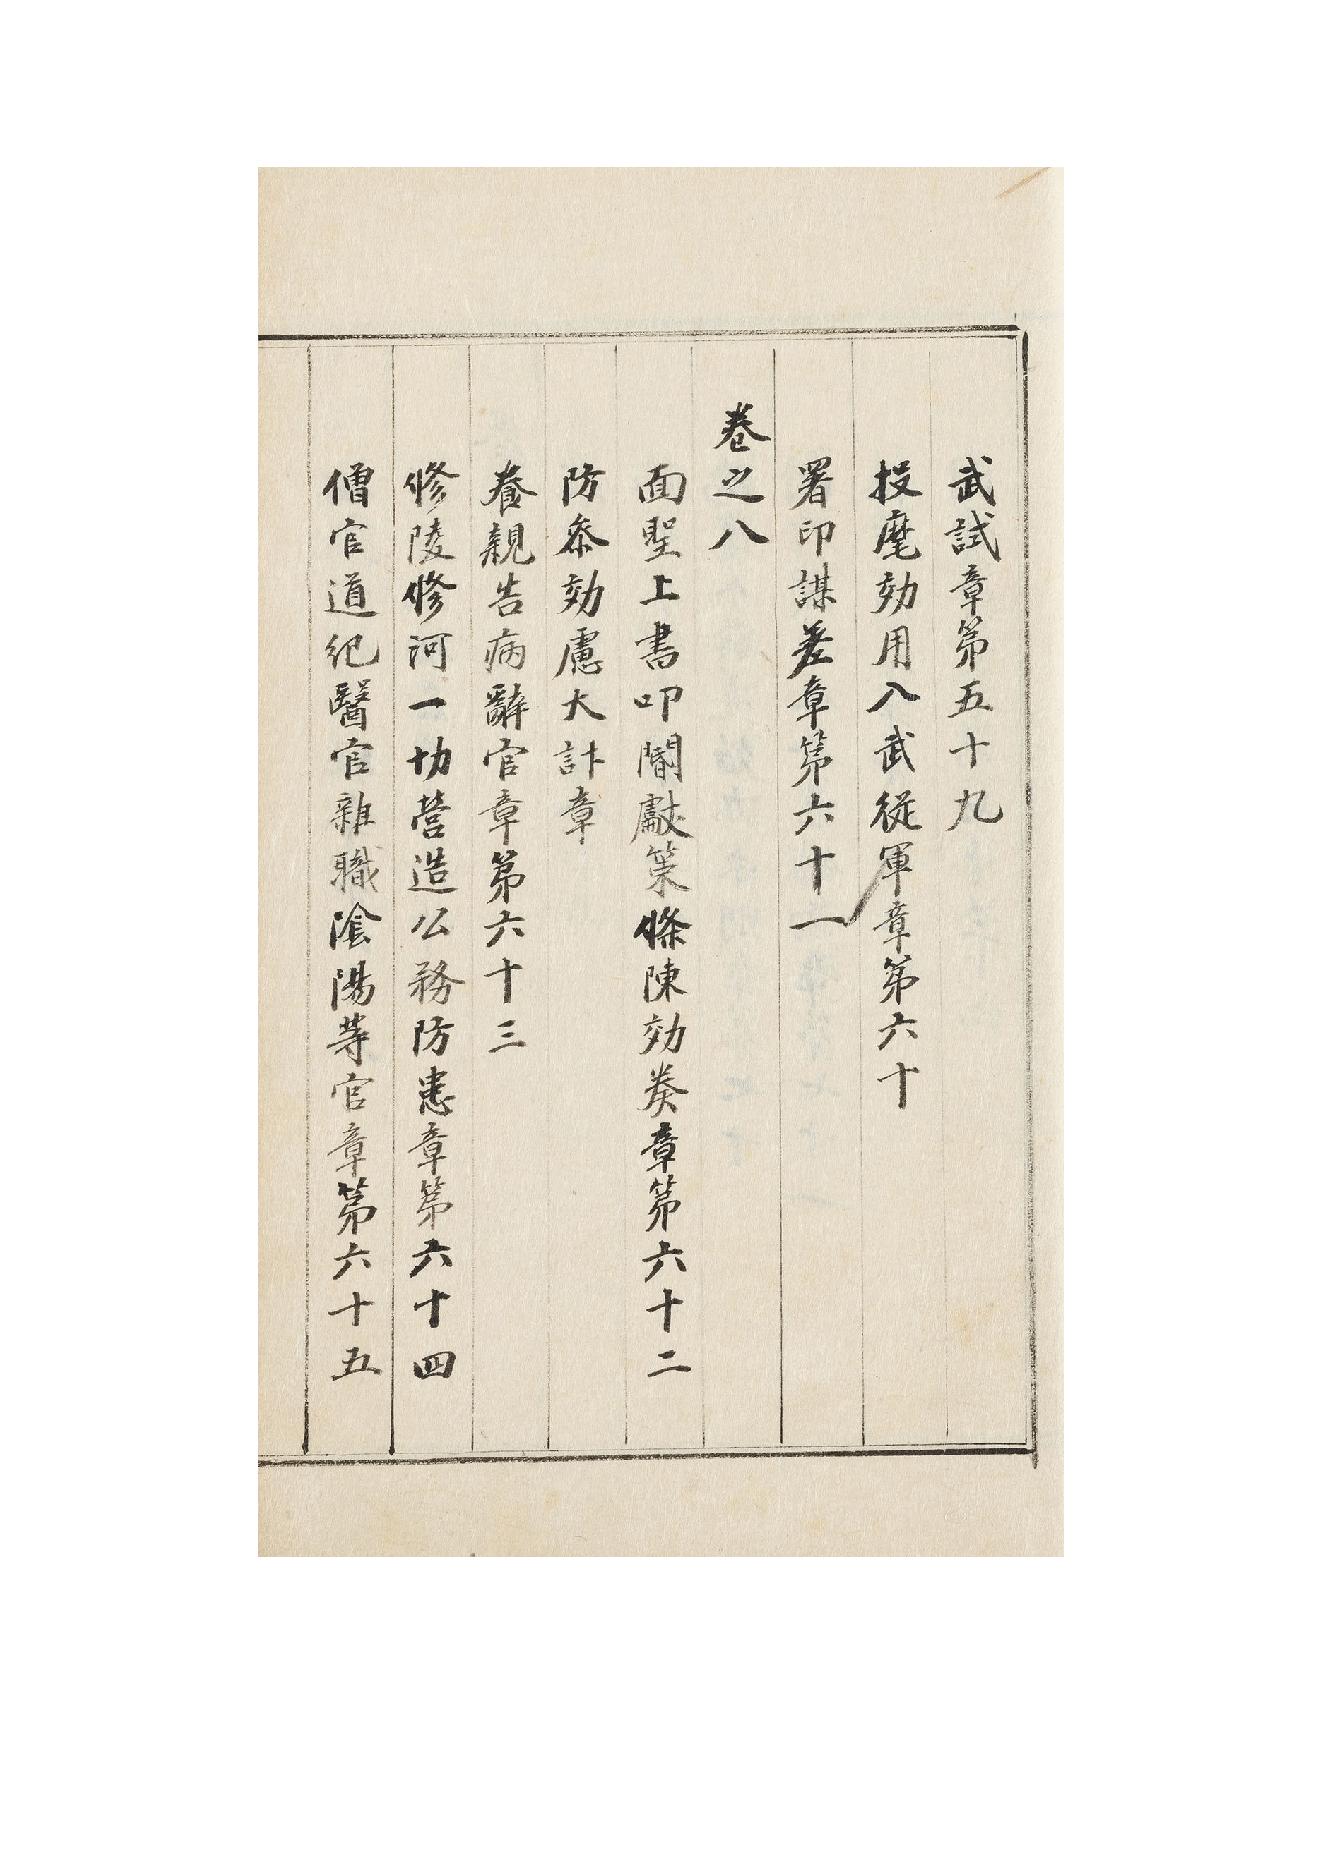 武試章第五十九
投麾効用入武從軍章第六十
署印謀差章第六十一
卷之八
面聖上書叩閽獻策條陳効奏章第六十二
防叅効慮大計章
養親告病辭官章第六十三
修陵修河一切營造公務防患章第六十四
僧官道紀醫官雜職陰陽等官章第六十五